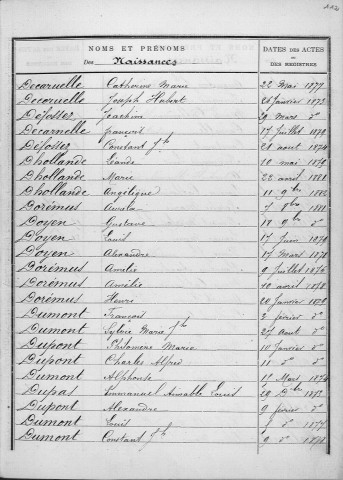 NOMS ET PRÉNOMS
Des Naissances
DATES DES ACTES
ET
DES REGISTRES
Decaruelle Catherine Marie 22 Mai 1877
Decaruelle Joseph Hubert 28 Janvier 1873
Défossez Joachim 29 Mars do
Decarnelle François 17 Juillet 1879
Défossez Constant Jh 28 août 1874
Dhollande Léandre 10 mai 1879
Dhollande Marie 22 avril 1881
Dhollande Angélique 11 9bre 1882
Dorémus Aurela 7 8bre 1881
Doyen Gustave 18 9bre do
Doyen Louis 17 Juin 1879
Doyen Alexandre 17 Mars 1878
Dorémus Amélie 9 Juillet 1876
Dorémus Amélie 10 avril 1878
Dorémus Henri 20 Janvier 1879
Dumont François 2 février do
Dumont Sylvie Marie Jh 27 Août do
Dupont Philomène Marie 10 Janvier do
Dupont Charles Alfred 11 do do
Dumont Alphonse 11 Mars 1874
Dupas Emmanuel Aimable Louis 29 Xbre 1873
Dupont Alexandre 9 février do
Dumont Louis do 1877
Dumont Constant Jh 9 do